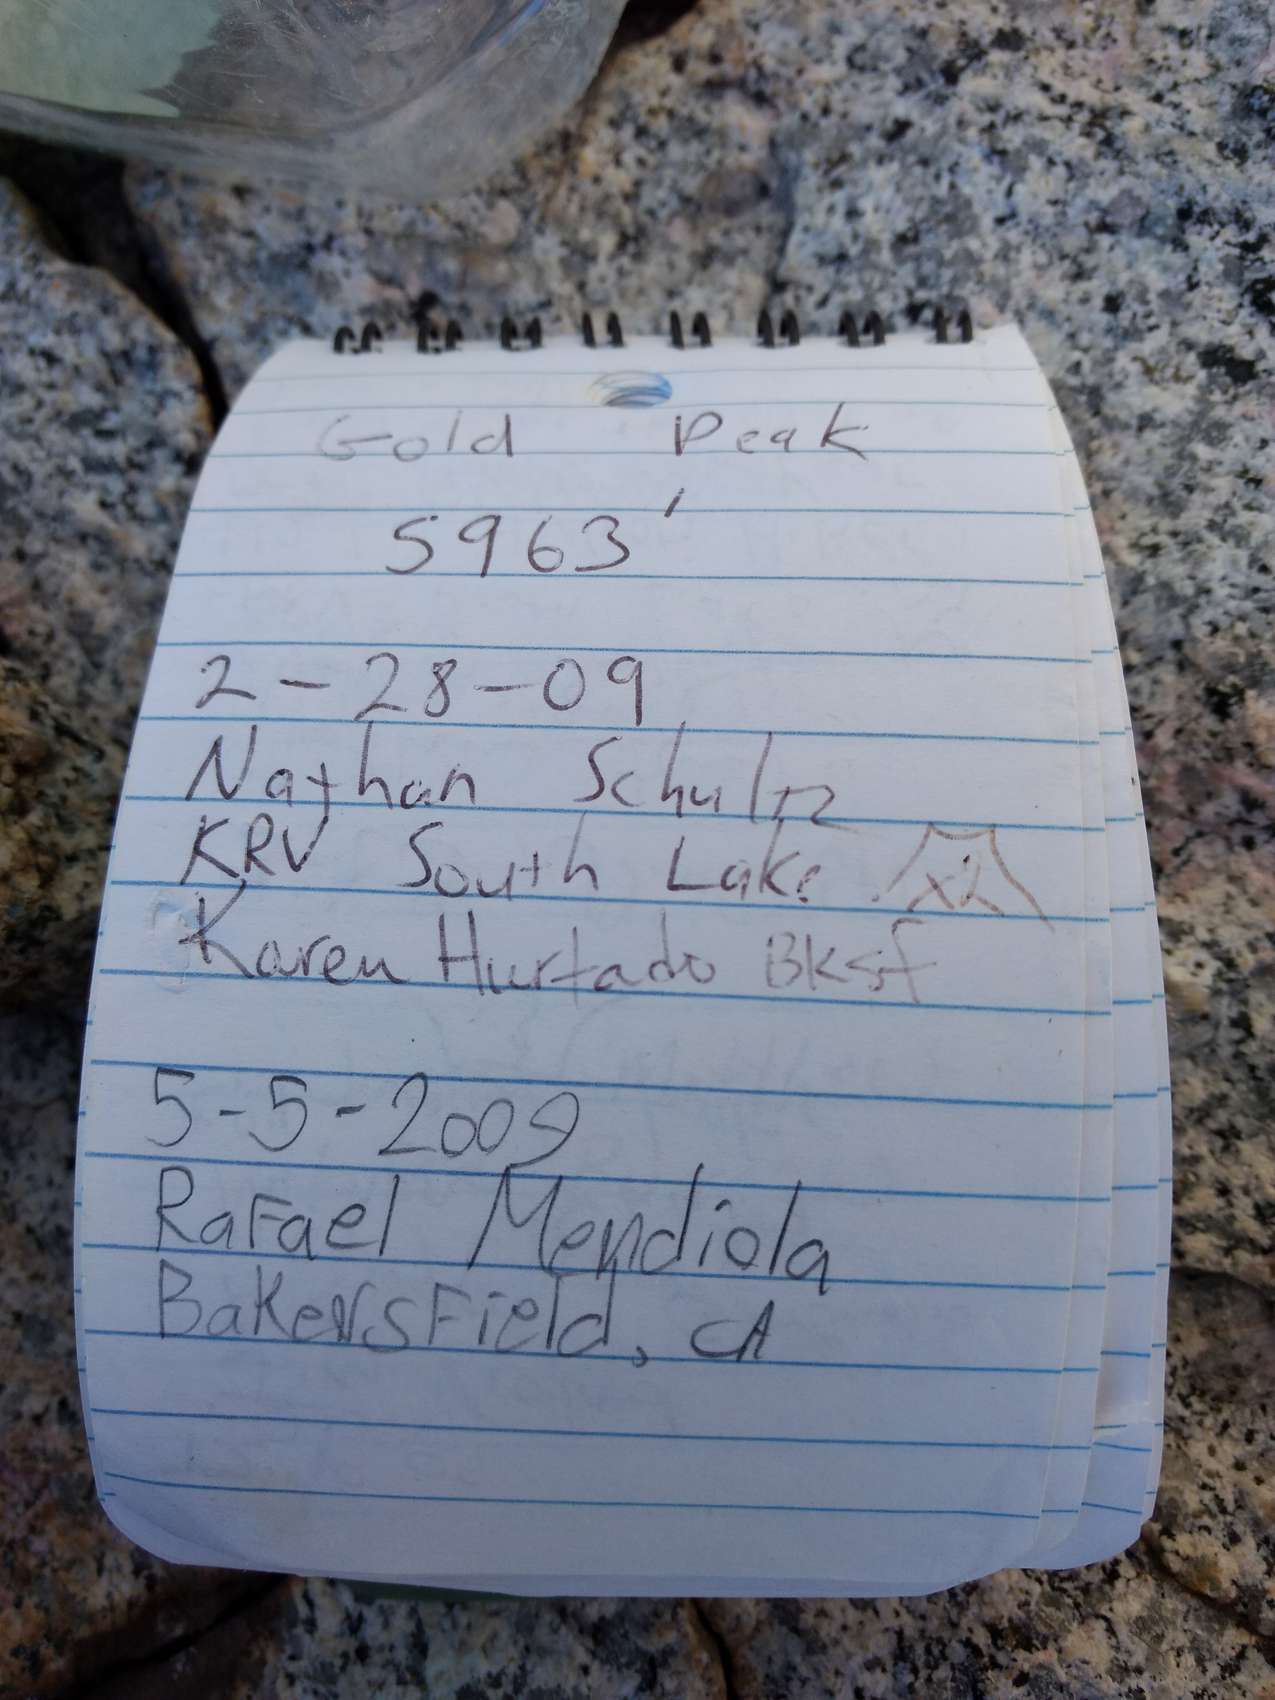 Gold Peak
5963'
2-28-09
Nathan Schultz
KRV South Lake x2
Karen Hurtado Bksf
5-5-2009
Rafael Mendiola
Bakersfield, CA